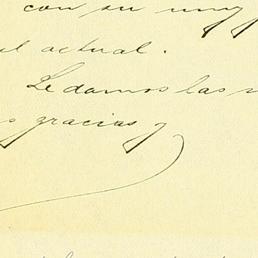 con su muy
actual.
Le damos las
gracias y